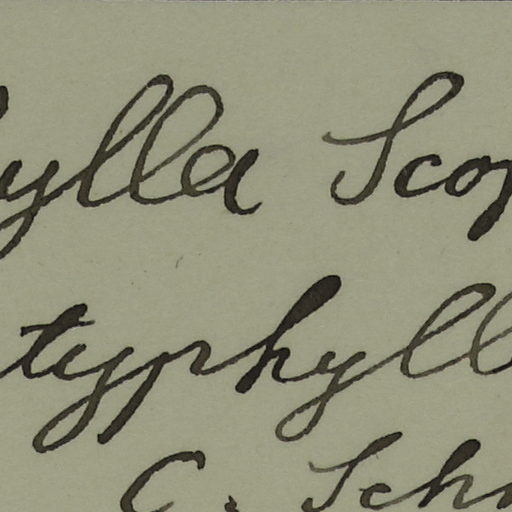 ylla Scop
typhyll
C. Sch